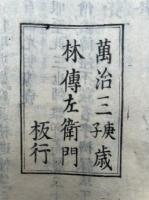 萬治三庚子歳
林傳左衛門
板行